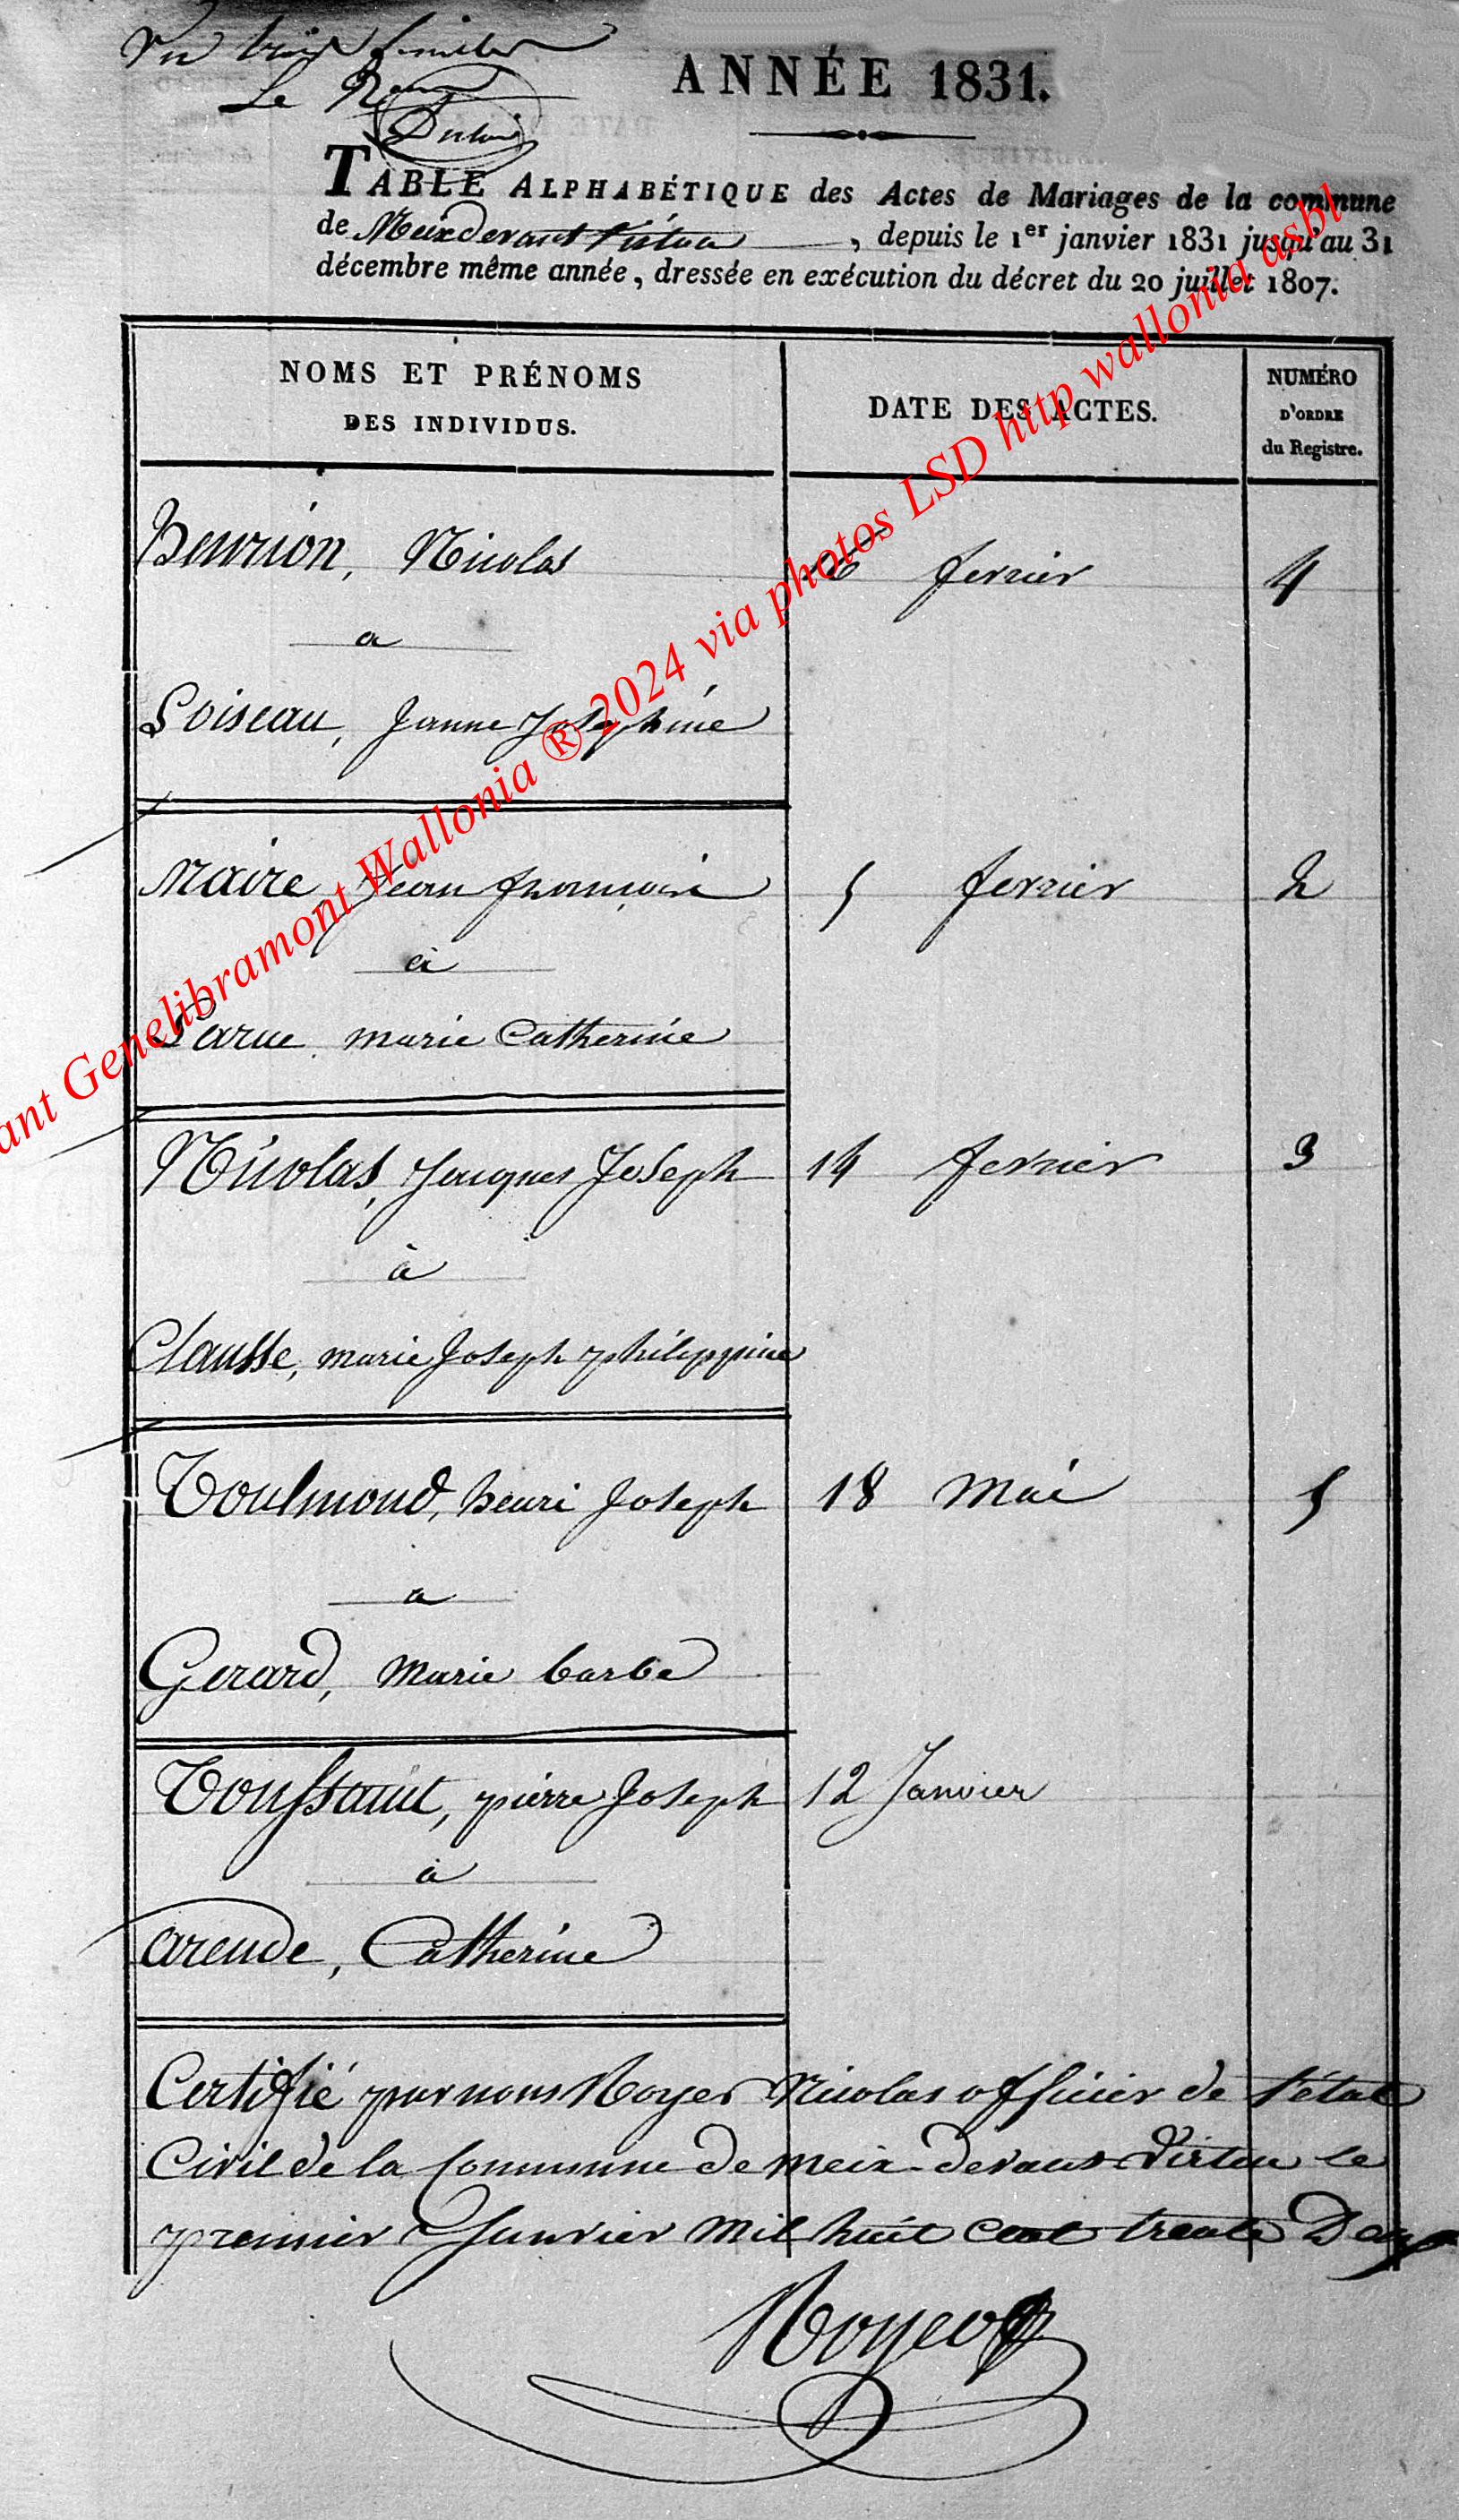 Vu trois feuillets
Le
ANNÉE 1831.
TABLE ALPHABÉTIQUE des Actes de Mariages de la commune
de Meix devant Virton, depuis le 1er janvier 1831 jusqu'au 31
décembre même année, dressée en exécution du décret du 20 juillet 1807.
NOMS ET PRÉNOMS
DES INDIVIDUS.
DATE DES ACTES.
NUMÉRO
D'ORDRE
du Registre.
Beurrion, Nicolas 16 fevrier 4
a
Loiseau, Jeanne Josephine
Maire, Jean françois 5 fevrier 2
à
marie Catherine
Nicolas, Jacques Joseph 14 fevrier 3
à
Clausse, marie Joseph philippine
Toulmond, henri Joseph 18 Mai 5
a
Gerard, Marie barbe
Toussaint, pierre Joseph 12 Janvier
à
arende, Catherine
Certifié par nous Noyer Nicolas officier de l'état
Civil de la Commune de Meix-devant-Virton le
premier Janvier Mil huit Cent trente Deux
Noyer
ant Genelibramont Wallonia ® 2024 via photos LSD http wallonia asbl